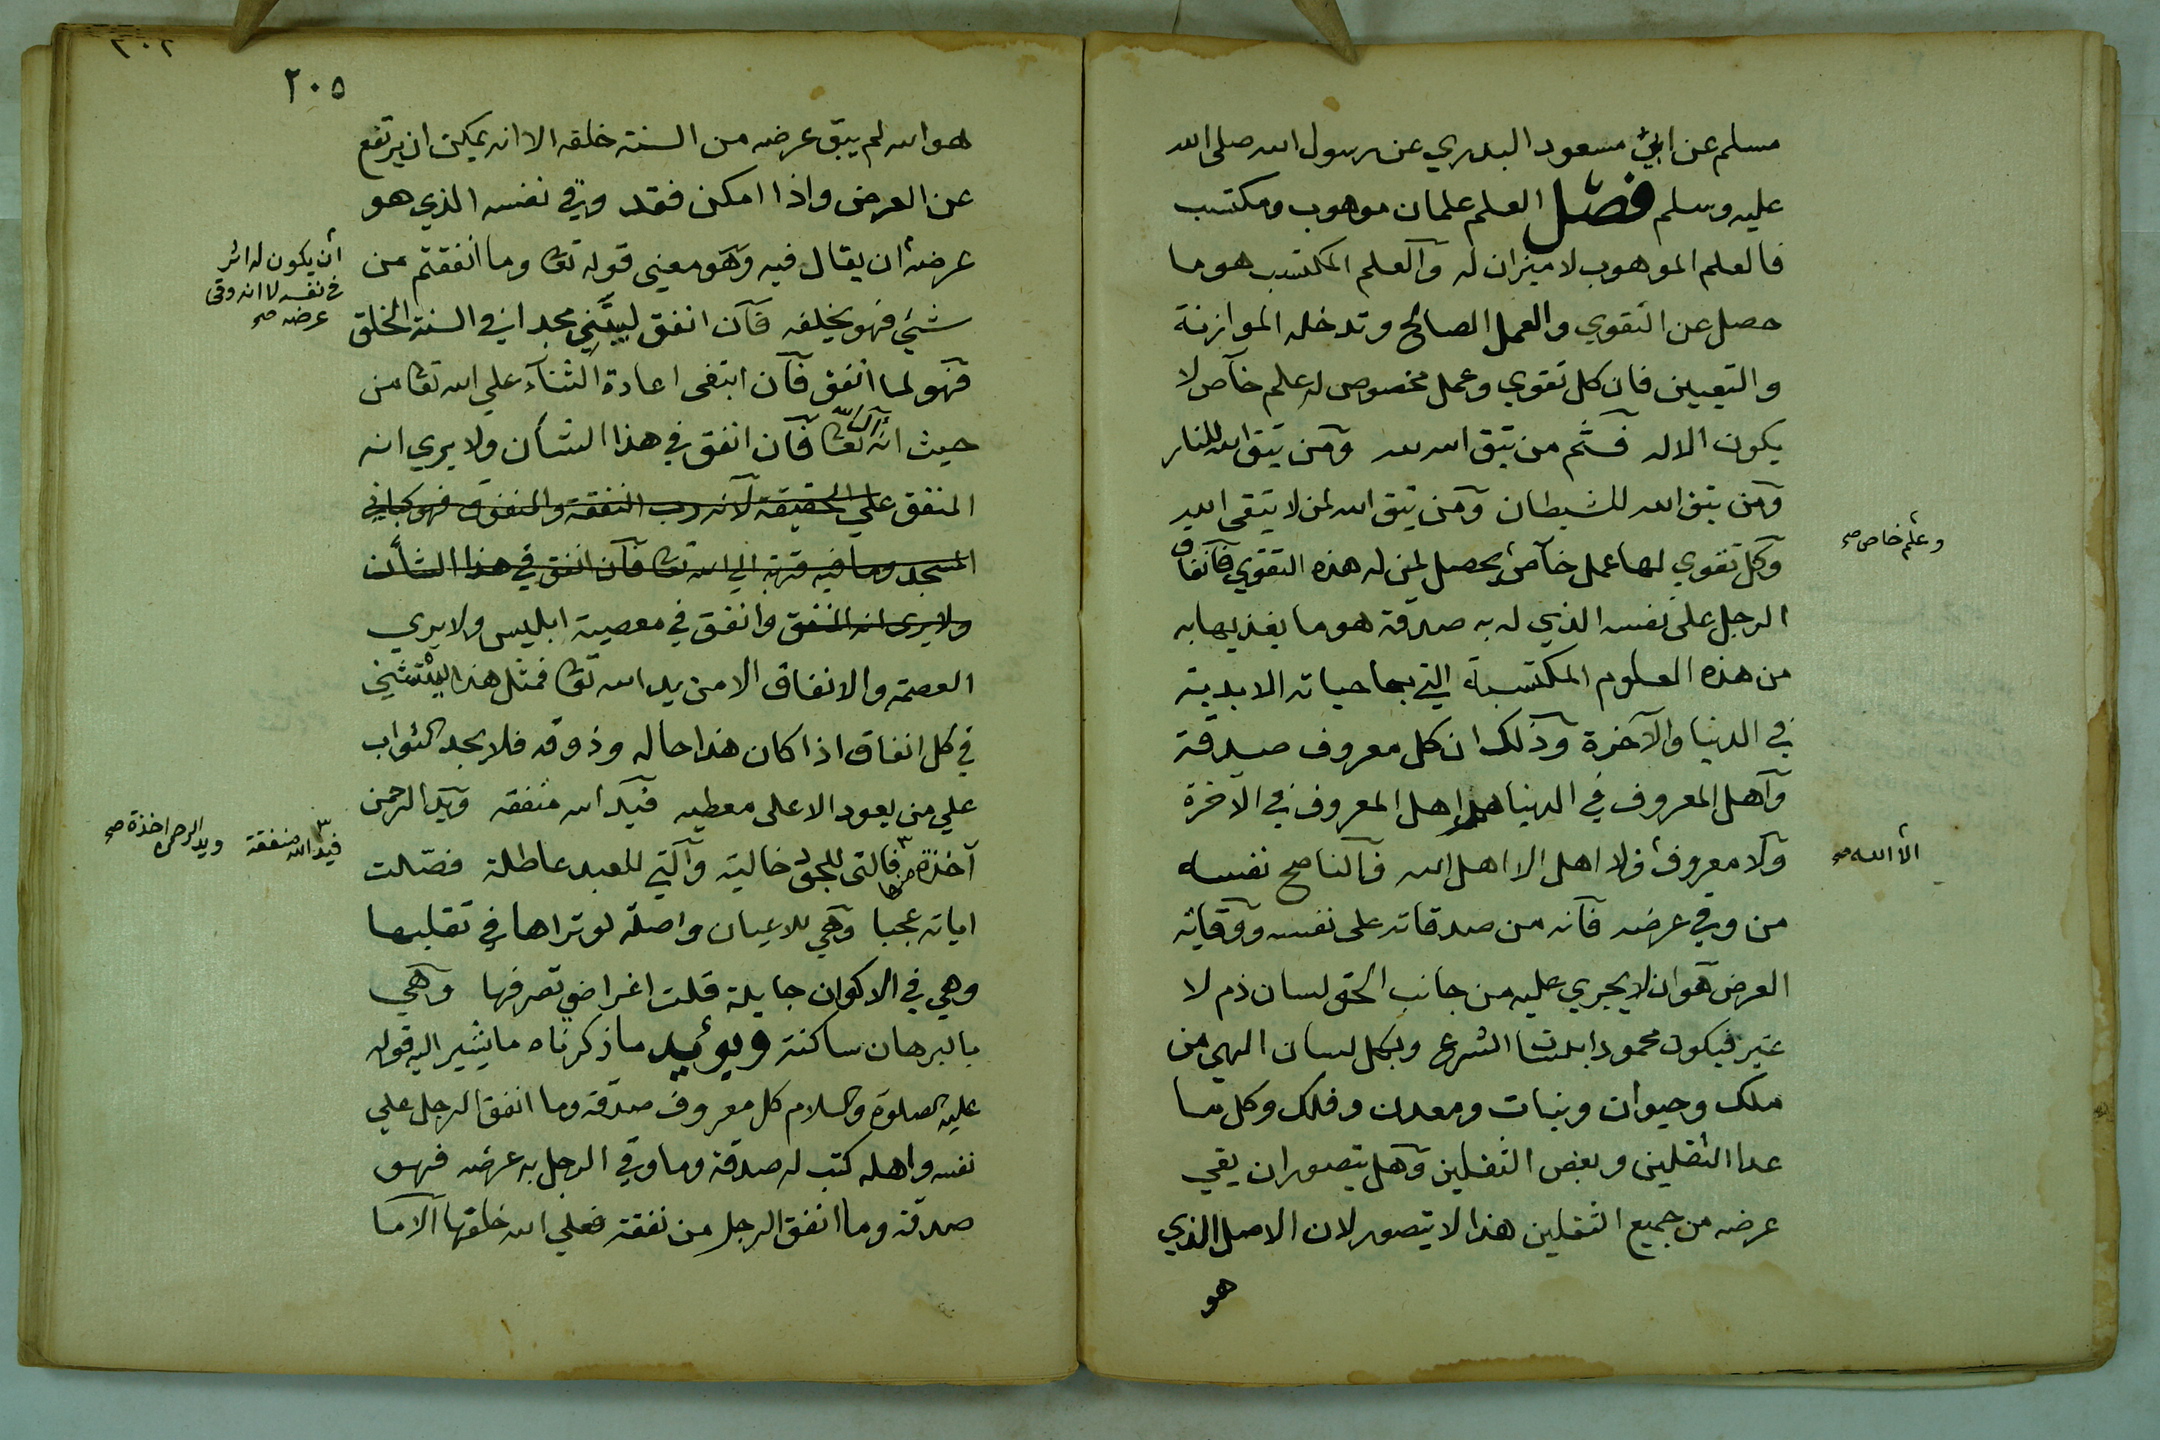 مسلم عن ابي مسعود البدري عن رسول الله صلى الله
عليه وسلم فصل العلم علمان موهوب ومكتسب
فالعلم الموهوب لا ميزان له والعلم المكتسب هو ما
حصل عن التقوي والعمل الصالح وتدخله الموازنة
والتعيين فان كل تقوي وعمل مخصوص له علم خاص لا
يكون الا له فثم من يتق الله لله ومن يتق الله للنار
ومن يتق الله للشيطان ومن يتق الله لمن لا يتقي الله
وكل تقوي لها عمل خاص يحصل لمن له هذه التقوي فانفاق
وعلم خاص صح
الرجل على نفسه الذي له به صدقة هو ما يغذيها به
من هذه العلوم المكتسبة التي بها حياته الابدية
في الدنيا والآخرة وذلك ان كل معروف صدقة
واهل المعروف في الدنيا هم اهل المعروف في الآخرة
ولا معروف فلا اهل الا اهل الله فالناصح نفسه
الا الله صح
من وقي عرضه فانه من صدقاته على نفسه ووقاية
العرض هو ان لا يجري عليه من جانب الحق لسان ذم لا
غير فيكون محمودا بلسان الشرع وبكل لسان الهي من
ملك وحيوان ونبات ومعدن وفلك وكل ما
عدا الثقلين وبعض الثقلين وهل يتصور ان يقي
عرضه من جميع الثقلين هذا لا يتصور لان الاصل الذي
هو
٢٠٢
٢٠٥
هو الله لم يبق عرضه من السنة خلقه الا انه يمكن ان يرتفع
عن العرض واذا امكن فقد وقي نفسه الذي هو
عرضه ان يقال فيه وهو معني قوله تعا وما انفقتم من
ان يكون له اثر
في نفسه لا انه وقي
عرضه صح
شيئ فهو يخلفه فان انفق ليبتني مجدا في السنة الخلق
فهو لما انفق فان ابتغى اعادة الثناء علي الله تعا من
حيث انه تعا فان انفق في هذا الشأن ولا يري انه
المنفق علي الحقيقة لانه رب النفقة والمنفق فهو كباني
المسجد وما فيه قربة الي الله تعا فان انفق في هذا الشأن
ولا يرى انه المنفق وانفق في معصية ابليس ولا يري
العصمة والانفاق الا من يد الله تعا فمثل هذا
في كل انفاق اذا كان هذا حاله وذوقه فلا يجد الثواب
علي من يعود الا على معطيه فيد الله منفقه ويد الرحمن
آخذة منها فالتى للحق خالية والتي للعبد عاطلة فصلت
فيد الله منفقة ويد الرحمن اخذة صح
اياته عجبا وهي للاعيان واصلة لو تراها في تقلبها
وهي في الاكوان جايلة قلت اغراض تصرفها وهي
بالبرهان ساكنة ويوئيد ما ذكرناه ما يشير اليه قوله
عليه الصلوة والسلام كل معروف صدقة وما انفق الرجل علي
نفسه واهله كتب له صدقة وما وقي الرجل به عرضه فهو
صدقة وما انفق الرجل من نفقة فعلي الله خلقها الا ما